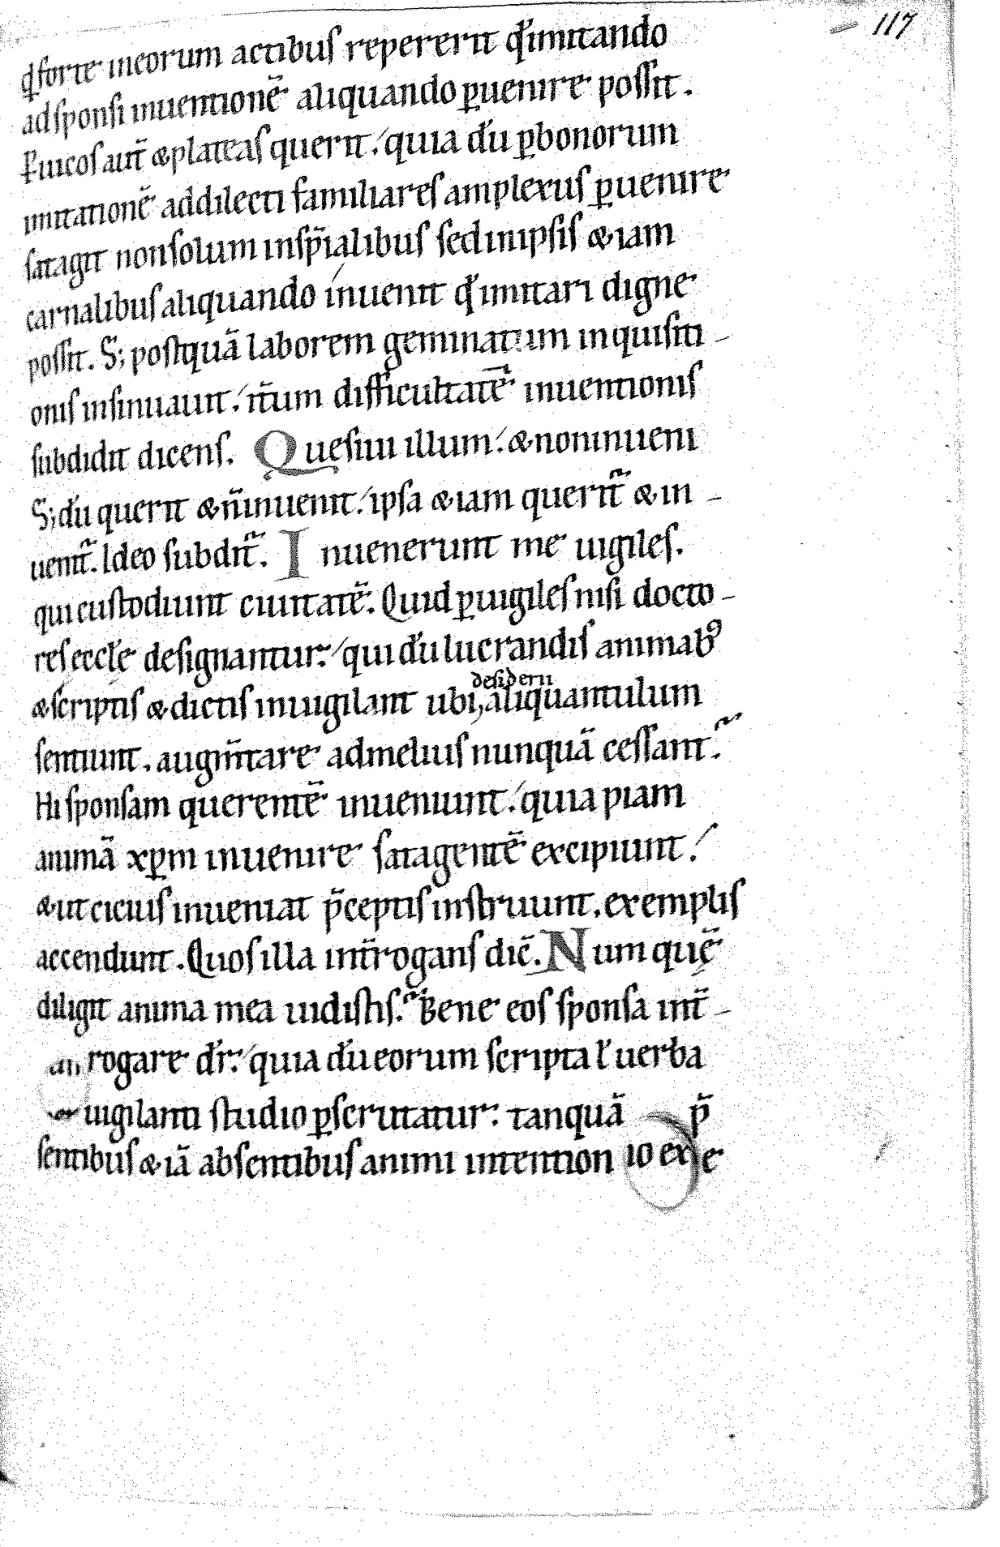 117
q̄d forte ineorum actibus repererit qď imitando
adsponsi inuentionē aliquando ꝑuenire possit.
Ꝑuicos aut̄ &plateas querit, quia dū ꝑbonorum
imitationē addilecti familiares amplexus ꝑuenire
satagit nonsolum insp̄ialibus sed inipsis &iam
carnalibus aliquando inuenit qď imitari digne
possit. S; postquā laborem geminatum inquisiti-
onis insinuauit, it̄um difficultatē inuentionis
subdidit dicens. Quesiui illum, &noninueni
S; dū querit &n̄inuenit, ipsa &iam querit᷑ &in-
uenit᷑. Ideo subdit᷑. Inuenerunt me uigiles.
qui custodiunt ciuitatē. Quid ꝑuigiles nisi docto-
res eccłe designantur, qui dū lucrandis animabꝰ
&scriptis &dictis inuigilant ubi desiderii aliquantulum
sentiunt, augm̄tare admelius nunquā cessant.
Hi sponsam querentē inueniunt, quia piam
animā xp̄m inuenire satagentē excipiunt,
&ut cicius inueniat p̄ceptis instruunt, exemplis
accendunt. Quos illa int̄rogans dic̄. Num quē
diligit anima mea uidistis. Bene eos sponsa int̄-
rogare dr̄, quia dū eorum scripta ł uerba
uigilanti studio ꝑscrutatur, tanquā p̄
sentibus &iā absentibus animi intention